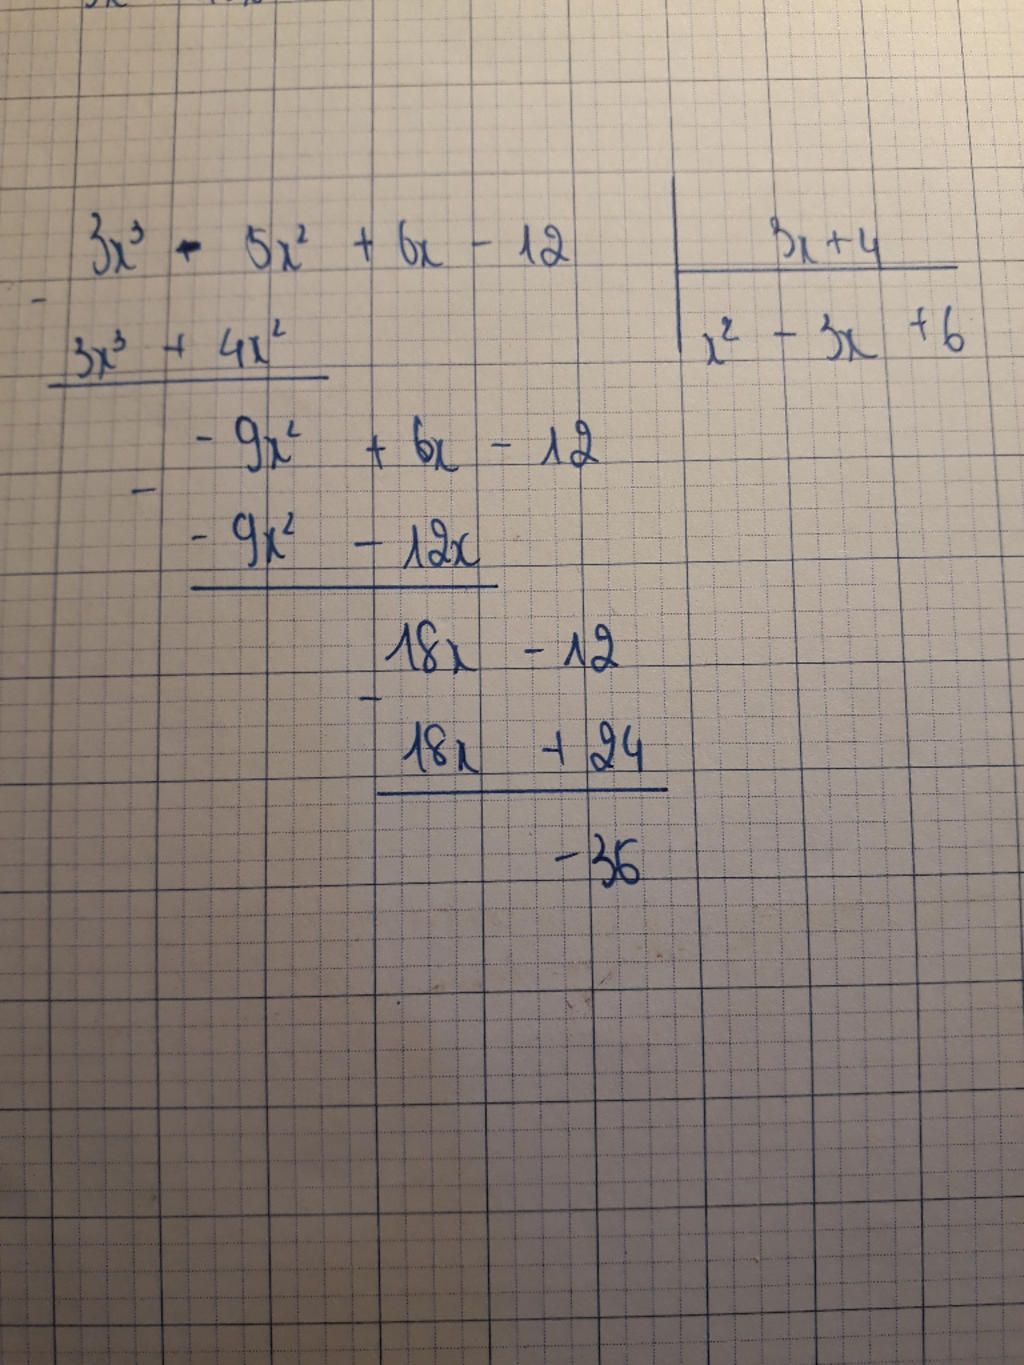 3x³ - 5x² + 6x - 12 | 3x + 4
- 3x³ + 4x² | x² - 3x + 6
- 9x² + 6x - 12
- - 9x² - 12x
18x - 12
- 18x + 24
- 36